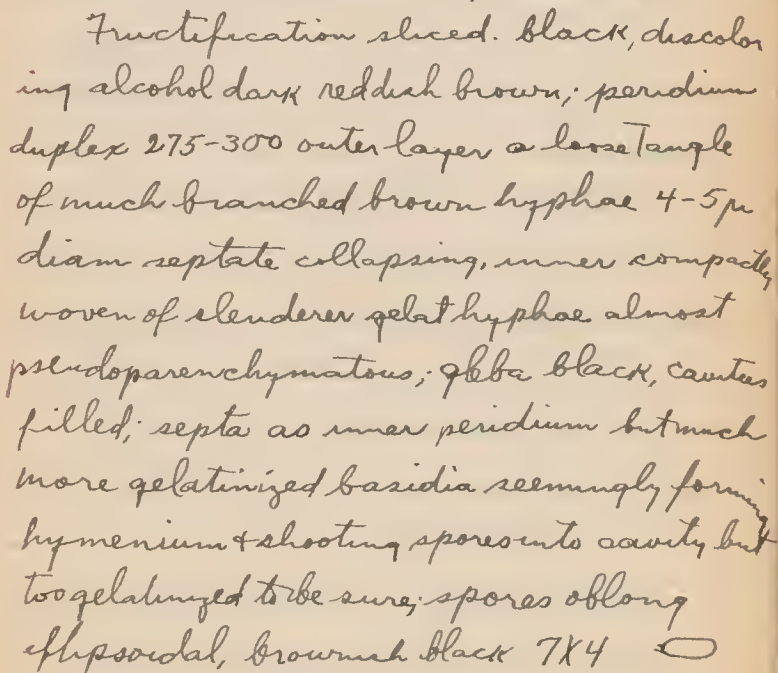 Fructification sliced. black, discolor
ing alcohol dark reddish brown; peridium
duplex 275-300 outer layer a loose Tangle
of much branched brown hyphae 4-5μ
diam septate collapsing, inner compactly
woven of slenderer gelat hyphae almost
pseudoparenchymatous; gleba black, cavities
filled; septa as inner peridium but much
more gelatinized basidia seemingly forming
hymenium & shooting spores into cavity but
too gelatinized to be sure; spores oblong
ellipsoidal, brownish black 7X4